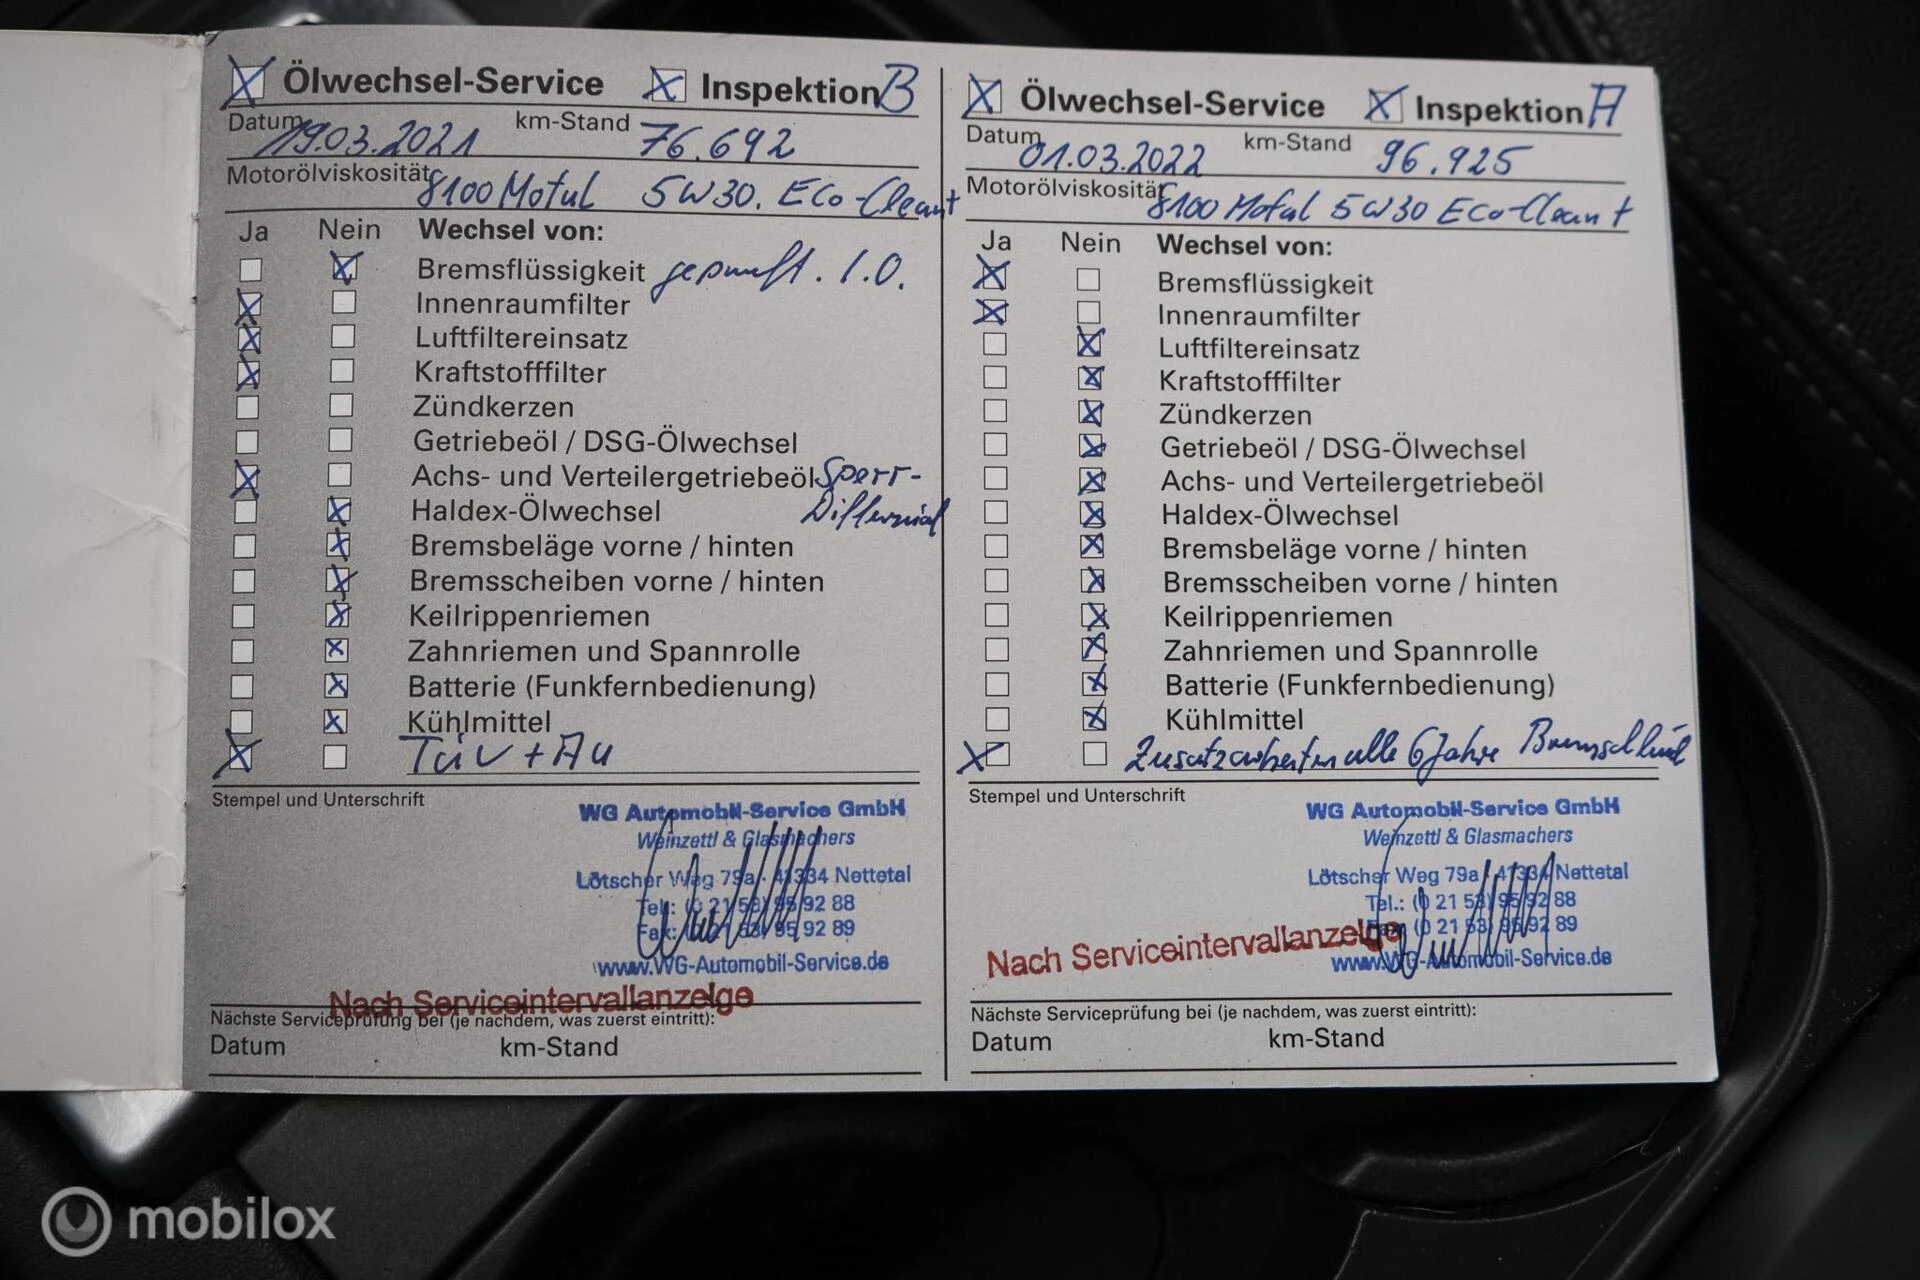 Ölwechsel-Service Inspektion B
Datum 19.03.2021 km-Stand 76.692
Motorölviskosität 8100 Motul 5W30. Eco-Clean+
Ja Nein Wechsel von:
Bremsflüssigkeit geprüft. I.O.
Innenraumfilter
Luftfiltereinsatz
Kraftstofffilter
Zündkerzen
Getriebeöl / DSG-Ölwechsel
Achs- und Verteilergetriebeöl Sperr-
Haldex-Ölwechsel Differenzial
Bremsbeläge vorne / hinten
Bremsscheiben vorne / hinten
Keilrippenriemen
Zahnriemen und Spannrolle
Batterie (Funkfernbedienung)
Kühlmittel
TüV + AU
Stempel und Unterschrift
WG Automobil-Service GmbH
Weinzettl & Glasmachers
Lötscher Weg 79a · 41334 Nettetal
Tel.: (0 21 53) 95 92 88
Fax: (0 21 53) 95 92 89
www.WG-Automobil-Service.de
Nach Serviceintervallanzeige
Nächste Serviceprüfung bei (je nachdem, was zuerst eintritt):
Datum km-Stand
Ölwechsel-Service Inspektion A
Datum 01.03.2022 km-Stand 96.925
Motorölviskosität 8100 Motul 5W30 Eco-Clean+
Ja Nein Wechsel von:
Bremsflüssigkeit
Innenraumfilter
Luftfiltereinsatz
Kraftstofffilter
Zündkerzen
Getriebeöl / DSG-Ölwechsel
Achs- und Verteilergetriebeöl
Haldex-Ölwechsel
Bremsbeläge vorne / hinten
Bremsscheiben vorne / hinten
Keilrippenriemen
Zahnriemen und Spannrolle
Batterie (Funkfernbedienung)
Kühlmittel
Zusatzarbeiten alle 6 Jahre
Stempel und Unterschrift
WG Automobil-Service GmbH
Weinzettl & Glasmachers
Lötscher Weg 79a · 41334 Nettetal
Tel.: (0 21 53) 95 92 88
Fax: (0 21 53) 95 92 89
www.WG-Automobil-Service.de
Nach Serviceintervallanzeige
Nächste Serviceprüfung bei (je nachdem, was zuerst eintritt):
Datum km-Stand
mobilox